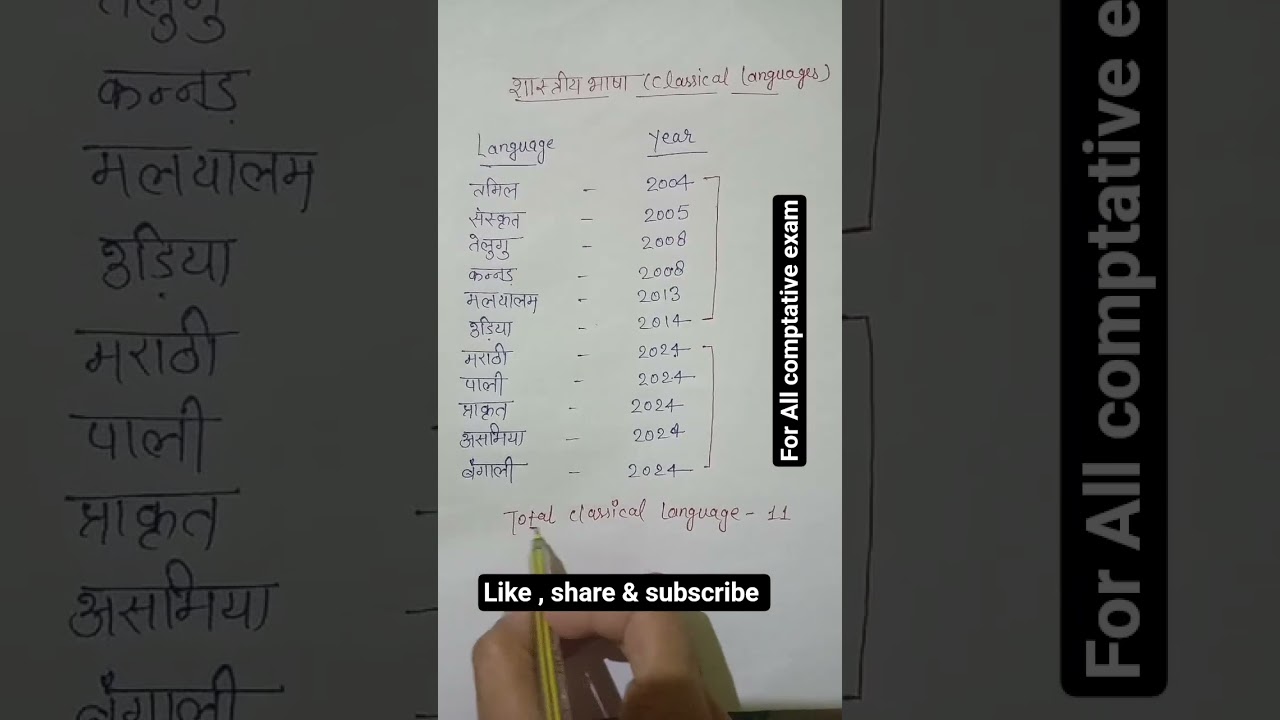 शास्त्रीय भाषा (Classical Languages)
Language Year
तमिल - 2004
संस्कृत - 2005
तेलुगु - 2008
कन्नड़ - 2008
मलयालम - 2013
उड़िया - 2014
मराठी - 2024
पाली - 2024
प्राकृत - 2024
असमिया - 2024
बंगाली - 2024
Total classical language - 11
For All comptative exam
Like , share & subscribe
तेलुगु
कन्नड़
मलयालम
उड़िया
मराठी
पाली
प्राकृत
असमिया
बंगाली
For All comptative e